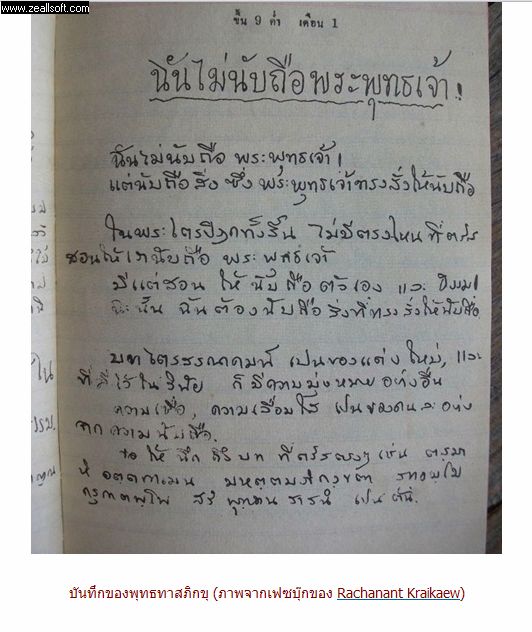 www.zeallsoft.com
ขึ้น 9 ค่ำ เดือน 1
ฉันไม่นับถือพระพุทธเจ้า!
ฉันไม่นับถือ พระพุทธเจ้า!
แต่นับถือสิ่ง ซึ่ง พระพุทธเจ้าทรงสั่งให้นับถือ
ในพระไตรปิฎกทั้งสิ้น ไม่มีตรงไหน ที่ตรัส
สอนให้เรานับถือ พระพุทธเจ้า
มีแต่สอน ให้นับถือตัวเอง และ ธรรม!
ฉะนั้น ฉันต้องนับถือ สิ่งที่ทรงสั่งให้นับถือ
บทไตรสรณคมน์ เป็นของแต่งใหม่, และ
ที่มีไว้ในวินัย ก็มีความมุ่งหมายอย่างอื่น
ความเชื่อ, ความเลื่อมใส เป็นของคนละอย่าง
จากความนับถือ.
ขอให้นึกถึงบท ที่ตรัส เช่น ตสฺมา
หิ อตฺตกาเมน มหตฺตมภิกงฺขตา สทฺธมฺโม
ครุกาตพฺโพ สรํ พุทฺธานสาสนํ เป็นต้น.
บันทึกของพุทธทาสภิกขุ (ภาพจากเฟซบุ๊กของ Rachanant Kraikaew)